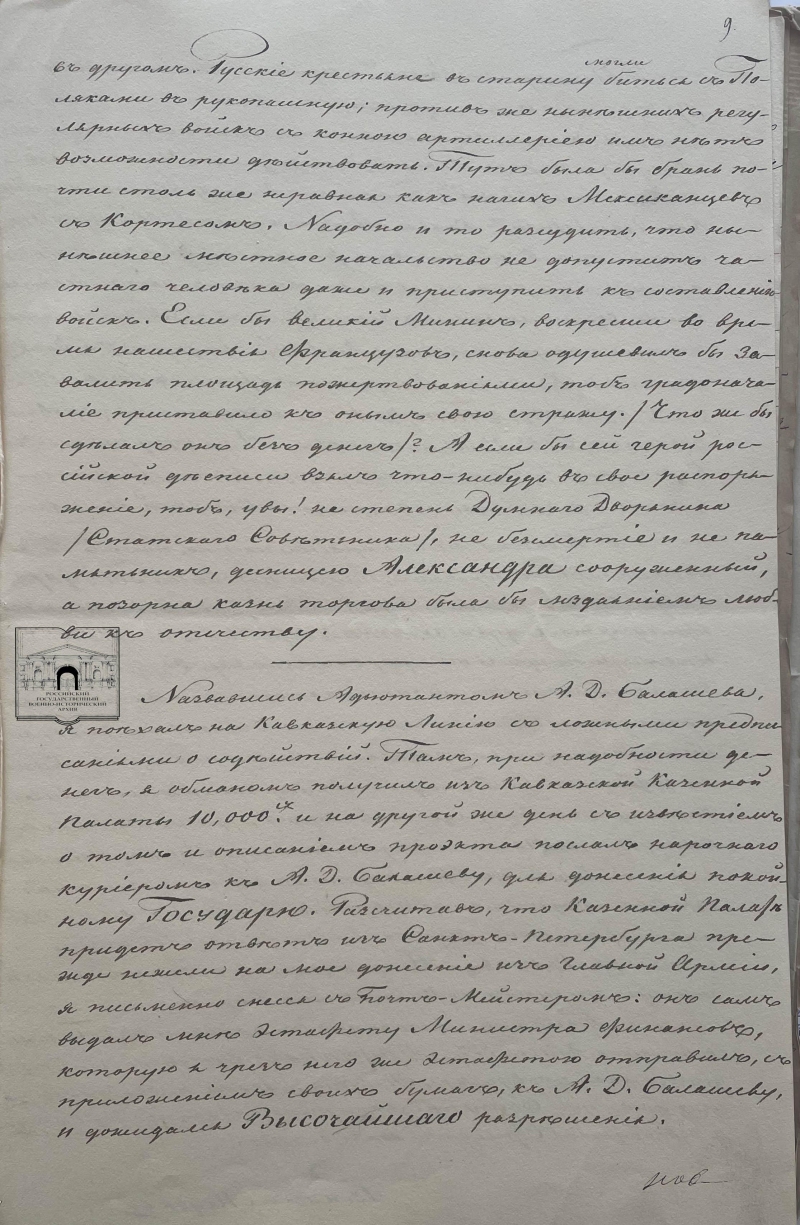 9.
въ другомъ. Русскіе крестьяне въ старину могли биться съ По-
ляками въ рукопашную; противъ же нынѣшнихъ регу-
лярныхъ войскъ съ конною артиллеріею имъ нѣтъ
возможности дѣйствовать. Тутъ была бы брань по-
чти столь же неравная какъ нагихъ Мексиканцевъ
съ Кортесомъ. Надобно и то разсудить, что ны-
нѣшнее мѣстное начальство не допуститъ ча-
стнаго человѣка даже и приступить къ составленію
войскъ. Если бы великій Мининъ, воскресши во вре-
мя нашествія Французовъ, снова одушевилъ бы за-
валить площадь пожертвованіями, тобъ градонача-
ліе приставило къ онымъ свою стражу. /Что же бы
сдѣлалъ онъ безъ денегъ/? А если бы сей герой рос-
сійской дѣеписи взялъ что-нибудь въ свое распоря-
женіе, тобъ, увы! не степень Думнаго Дворянина
/Статскаго Совѣтника/, не безсмертіе и не па-
мятникъ, десницею Александра сооруженный,
а позорна казнь торгова была бы мздаяніемъ люб-
ви къ отечеству.
РОССІЙСКИЙ
ГОСУДАРСТВЕННЫЙ
ВОЕННО-ИСТОРИЧЕСКИЙ
АРХИВ
Назвавшись Адъютантомъ А. Д. Балашева,
я поѣхалъ на Кавказскую Линію съ ложными предпи-
саніями о содѣйствій. Тамъ, при надобности де-
негъ, я обманомъ получилъ изъ Кавказской Казенной
Палаты 10,000.хъ и на другой же день съ извѣстіемъ
о томъ и описаніемъ проэкта послалъ нарочнаго
курьеромъ къ А. Д. Балашеву, для донесенія покой-
ному Государю. Разсчитавъ, что Казенной Палатѣ
придетъ отвѣтъ изъ Санктъ-Петербурга пре-
жде нежели на мое донесеніе изъ Главной Арміи,
я письменно снесся съ Почтъ-Мейстеромъ: онъ самъ
выдалъ мнѣ эстафету Министра Финансовъ,
которую я чрезъ него же эстафетою отправилъ, съ
приложеніемъ своихъ бумагъ, къ А. Д. Балашеву,
и дожидался Высочайшаго разрѣшенія.
пов-